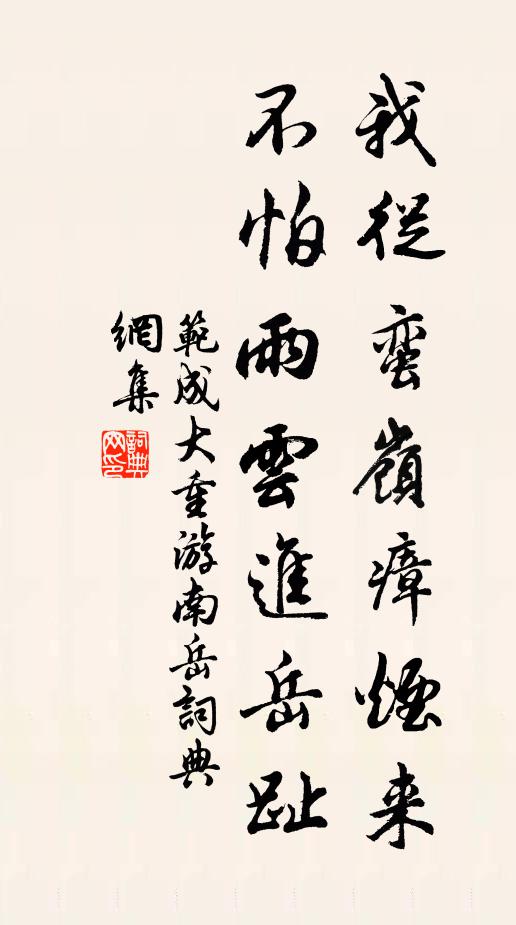 我從蛮嶺瘴煙来
不怕雨雲進岳趾
範成大重游南岳詞典
網集
詞典
网印